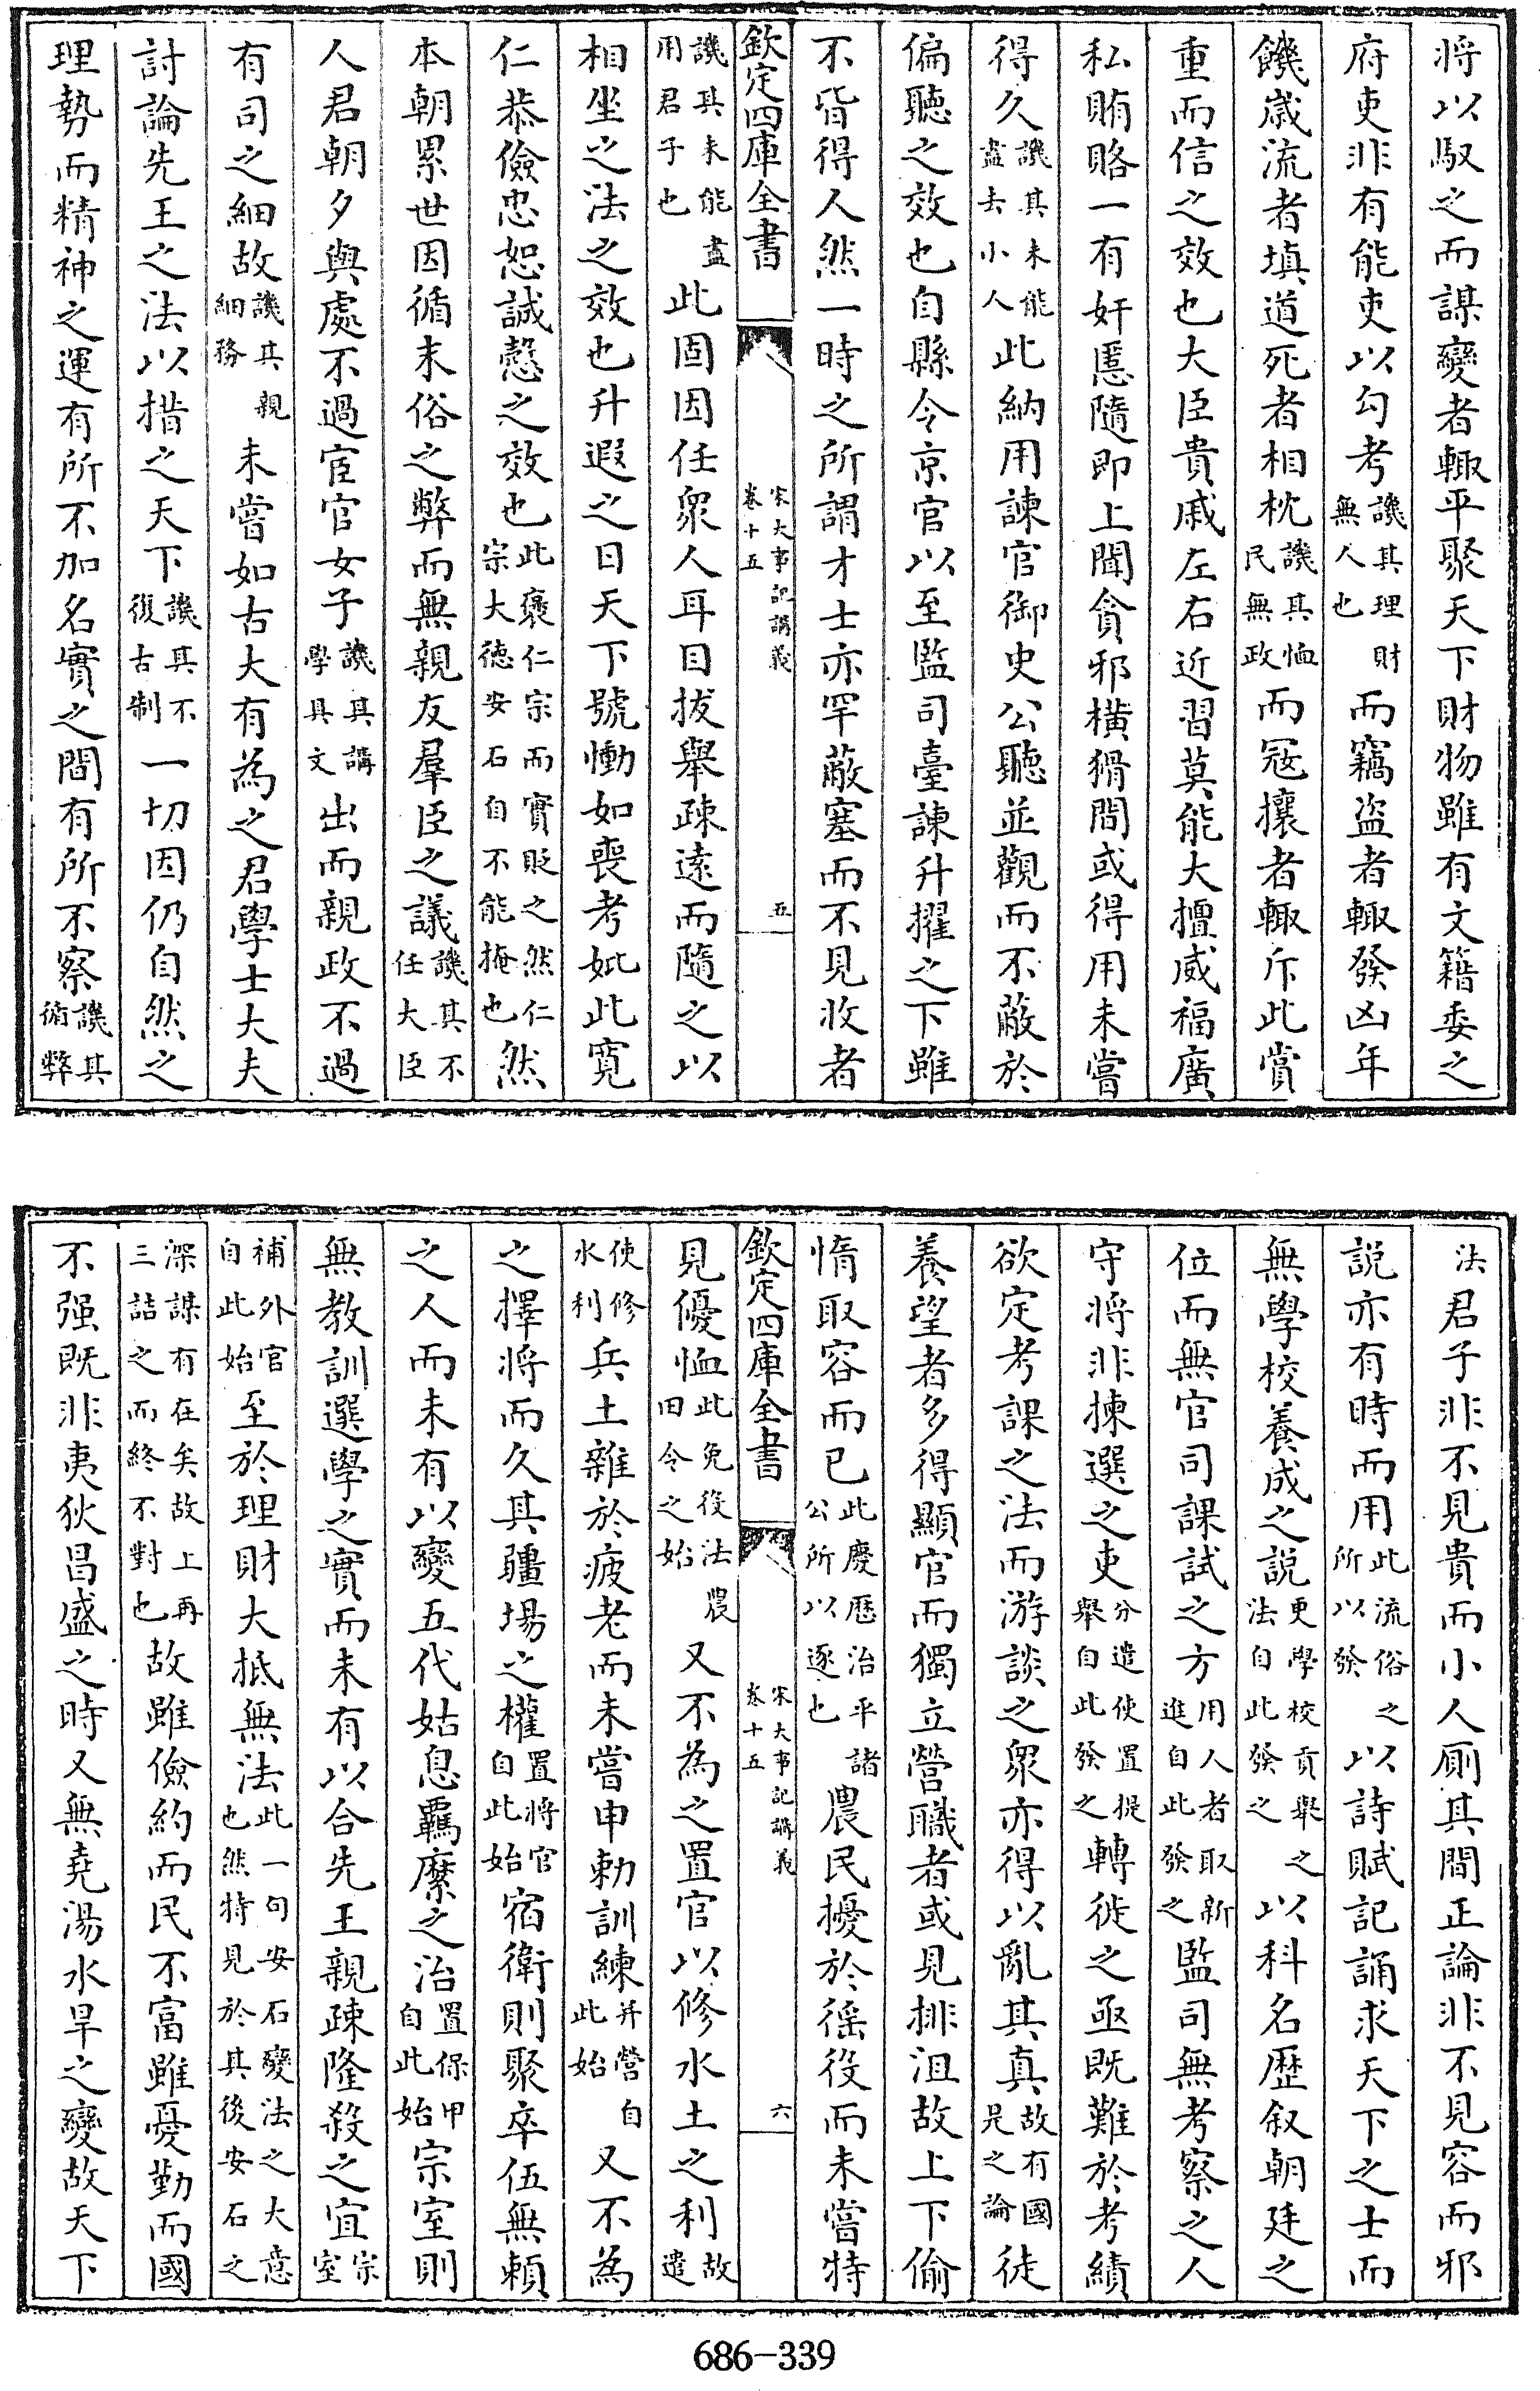 將以馭之而謀變者輒平聚天下財物雖有文籍委之
府吏非有能吏以勾考譏其理財無人也而竊盗者輒發凶年
饑歳流者填道死者相枕譏其恤民無政而冦攘者輒斥此賞
重而信之效也大臣貴戚左右近習莫能大擅威福廣
私賄賂一有奸慝隨即上聞貪邪橫猾間或得用未嘗
得久譏其未能盡去小人此納用諫官御史公聽並觀而不蔽於
偏聽之效也自縣令京官以至監司臺諫升擢之下雖
不皆得人然一時之所謂才士亦罕蔽塞而不見收者
欽定四庫全書 宋大事記講義 卷十五 五
譏其未能盡用君子也此固因任衆人耳目拔舉疎逺而隨之以
相坐之法之效也升遐之日天下號慟如喪考妣此寛
仁恭儉忠恕誠慤之效也此褒仁宗而實貶之然仁宗大徳安石自不能掩也然
本朝累世因循末俗之弊而無親友羣臣之議譏其不任大臣
人君朝夕與處不過宦官女子譏其講學具文出而親政不過
有司之細故譏其親細務未嘗如古大有為之君學士大夫
討論先王之法以措之天下譏其不復古制一切因仍自然之
理勢而精神之運有所不加名實之間有所不察譏其術弊
法君子非不見貴而小人厠其間正論非不見容而邪
説亦有時而用此流俗之所以發以詩賦記誦求天下之士而
無學校養成之説更學校貢舉之法自此發之以科名歴叙朝廷之
位而無官司課試之方用人者取新進自此發之監司無考察之人
守將非揀選之吏分遣使置提舉自此發之轉徙之亟既難於考績
欲定考課之法而游談之衆亦得以亂其真故有國是之論徒
養望者多得顯官而獨立營職者或見排沮故上下偷
惰取容而已此慶厯治平諸公所以逐也農民擾於徭役而未嘗特
欽定四庫全書 宋大事記講義 卷十五 六
見優恤此免役法農田令之始又不為之置官以修水土之利故遣
使修水利兵士雜於疲老而未嘗申勅訓練并營自此始又不為
之擇將而久其疆場之權置將官自此始宿衛則聚卒伍無頼
之人而未有以變五代姑息羈縻之治置保甲自此始宗室則
無教訓選學之實而未有以合先王親疎隆殺之宜宗室
補外官自此始至於理財大抵無法此一句安石變法之大意也然特見於其後安石之
深謀有在矣故上再三詰之而終不對也故雖儉約而民不富雖憂勤而國
不强既非夷狄昌盛之時又無堯湯水旱之變故天下
686-339